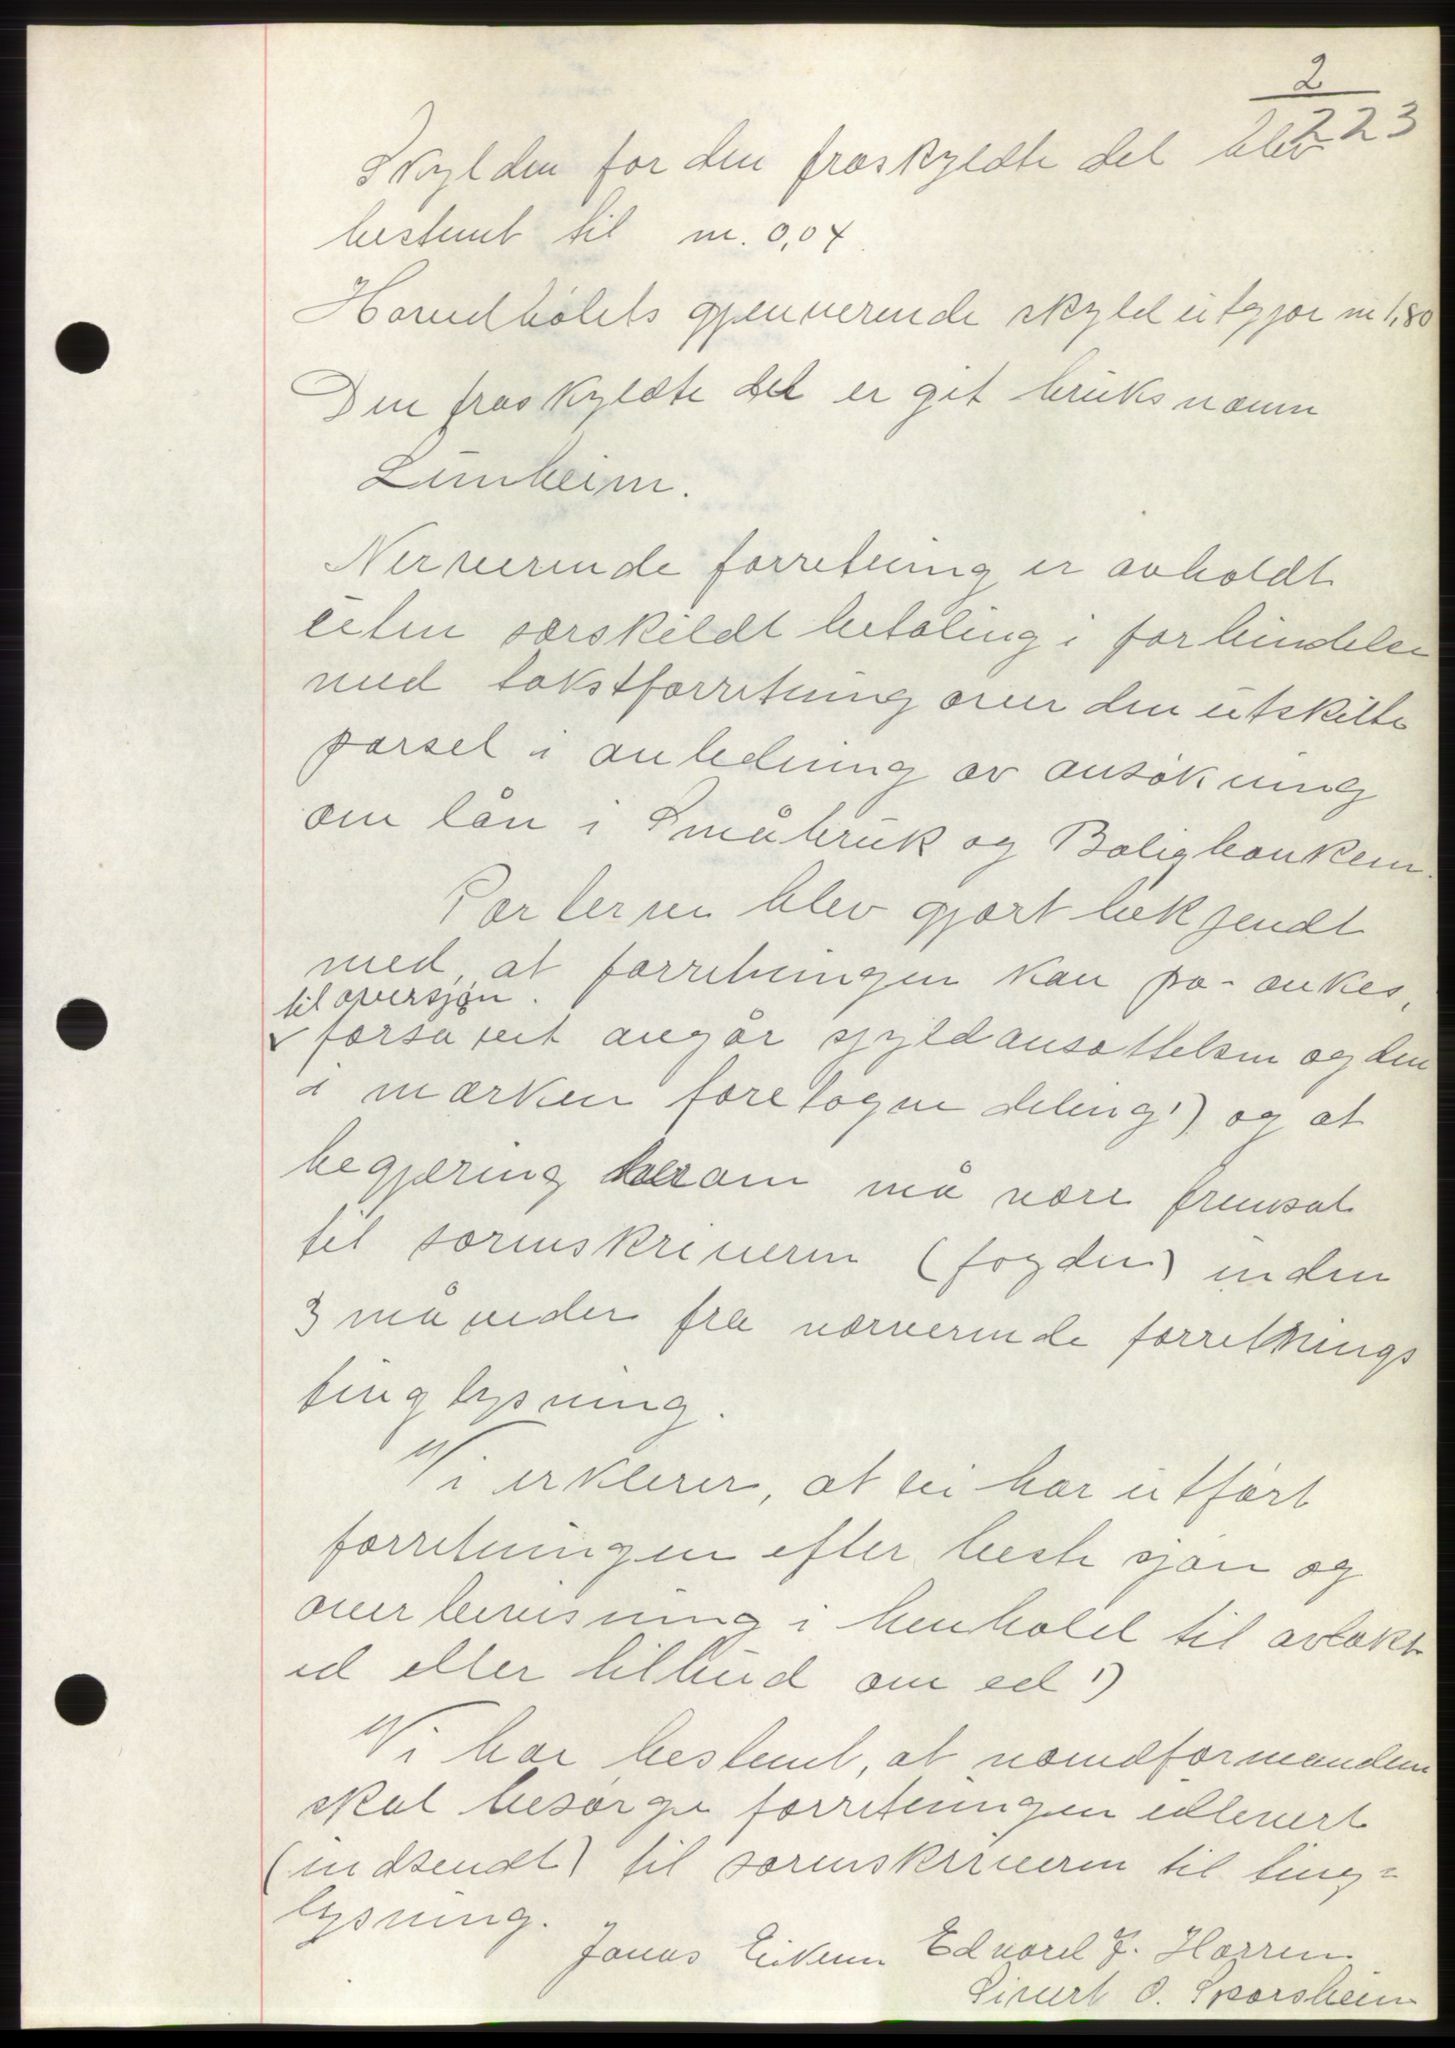 2
223
Skylden for den fraskyldte del blev
bestemt til m. 0,04
Hovedbølets gjenverende skyld utgjør m 1,80
Den fraskyldte del er git bruksnavn
Lunheim.
Nerverende forretning er avholdt
uten særskildt betaling i forbindelse
med takstforretning over den utskilte
parsel i anledning av ansøkning
om lån i Småbruk og Boligbanken.
Parterne blev gjort bekjendt
med, at forretningen kan på-ankes,
til oversjøn.
✓ forsavit angår skyldansættelsen og den
i marken foretagne deling 1) og at
begjæring herom må være fremsat
til sorenskriveren (fogden) inden
3 måneder fra nærverende forretnings
tinglysning.
Vi erklerer, at vi har utført
forretningen efter beste sjøn og
overbevisning i henhold til avlakt
ed eller tilbud om ed 1)
Vi har bestemt, at nævndformanden
skal besørge forretningen utlevert
(indsendt) til sorenskriveren til ting=
lysning.
Jonas Eikren Edvard J. Harren
Sivert O. Sporsheim